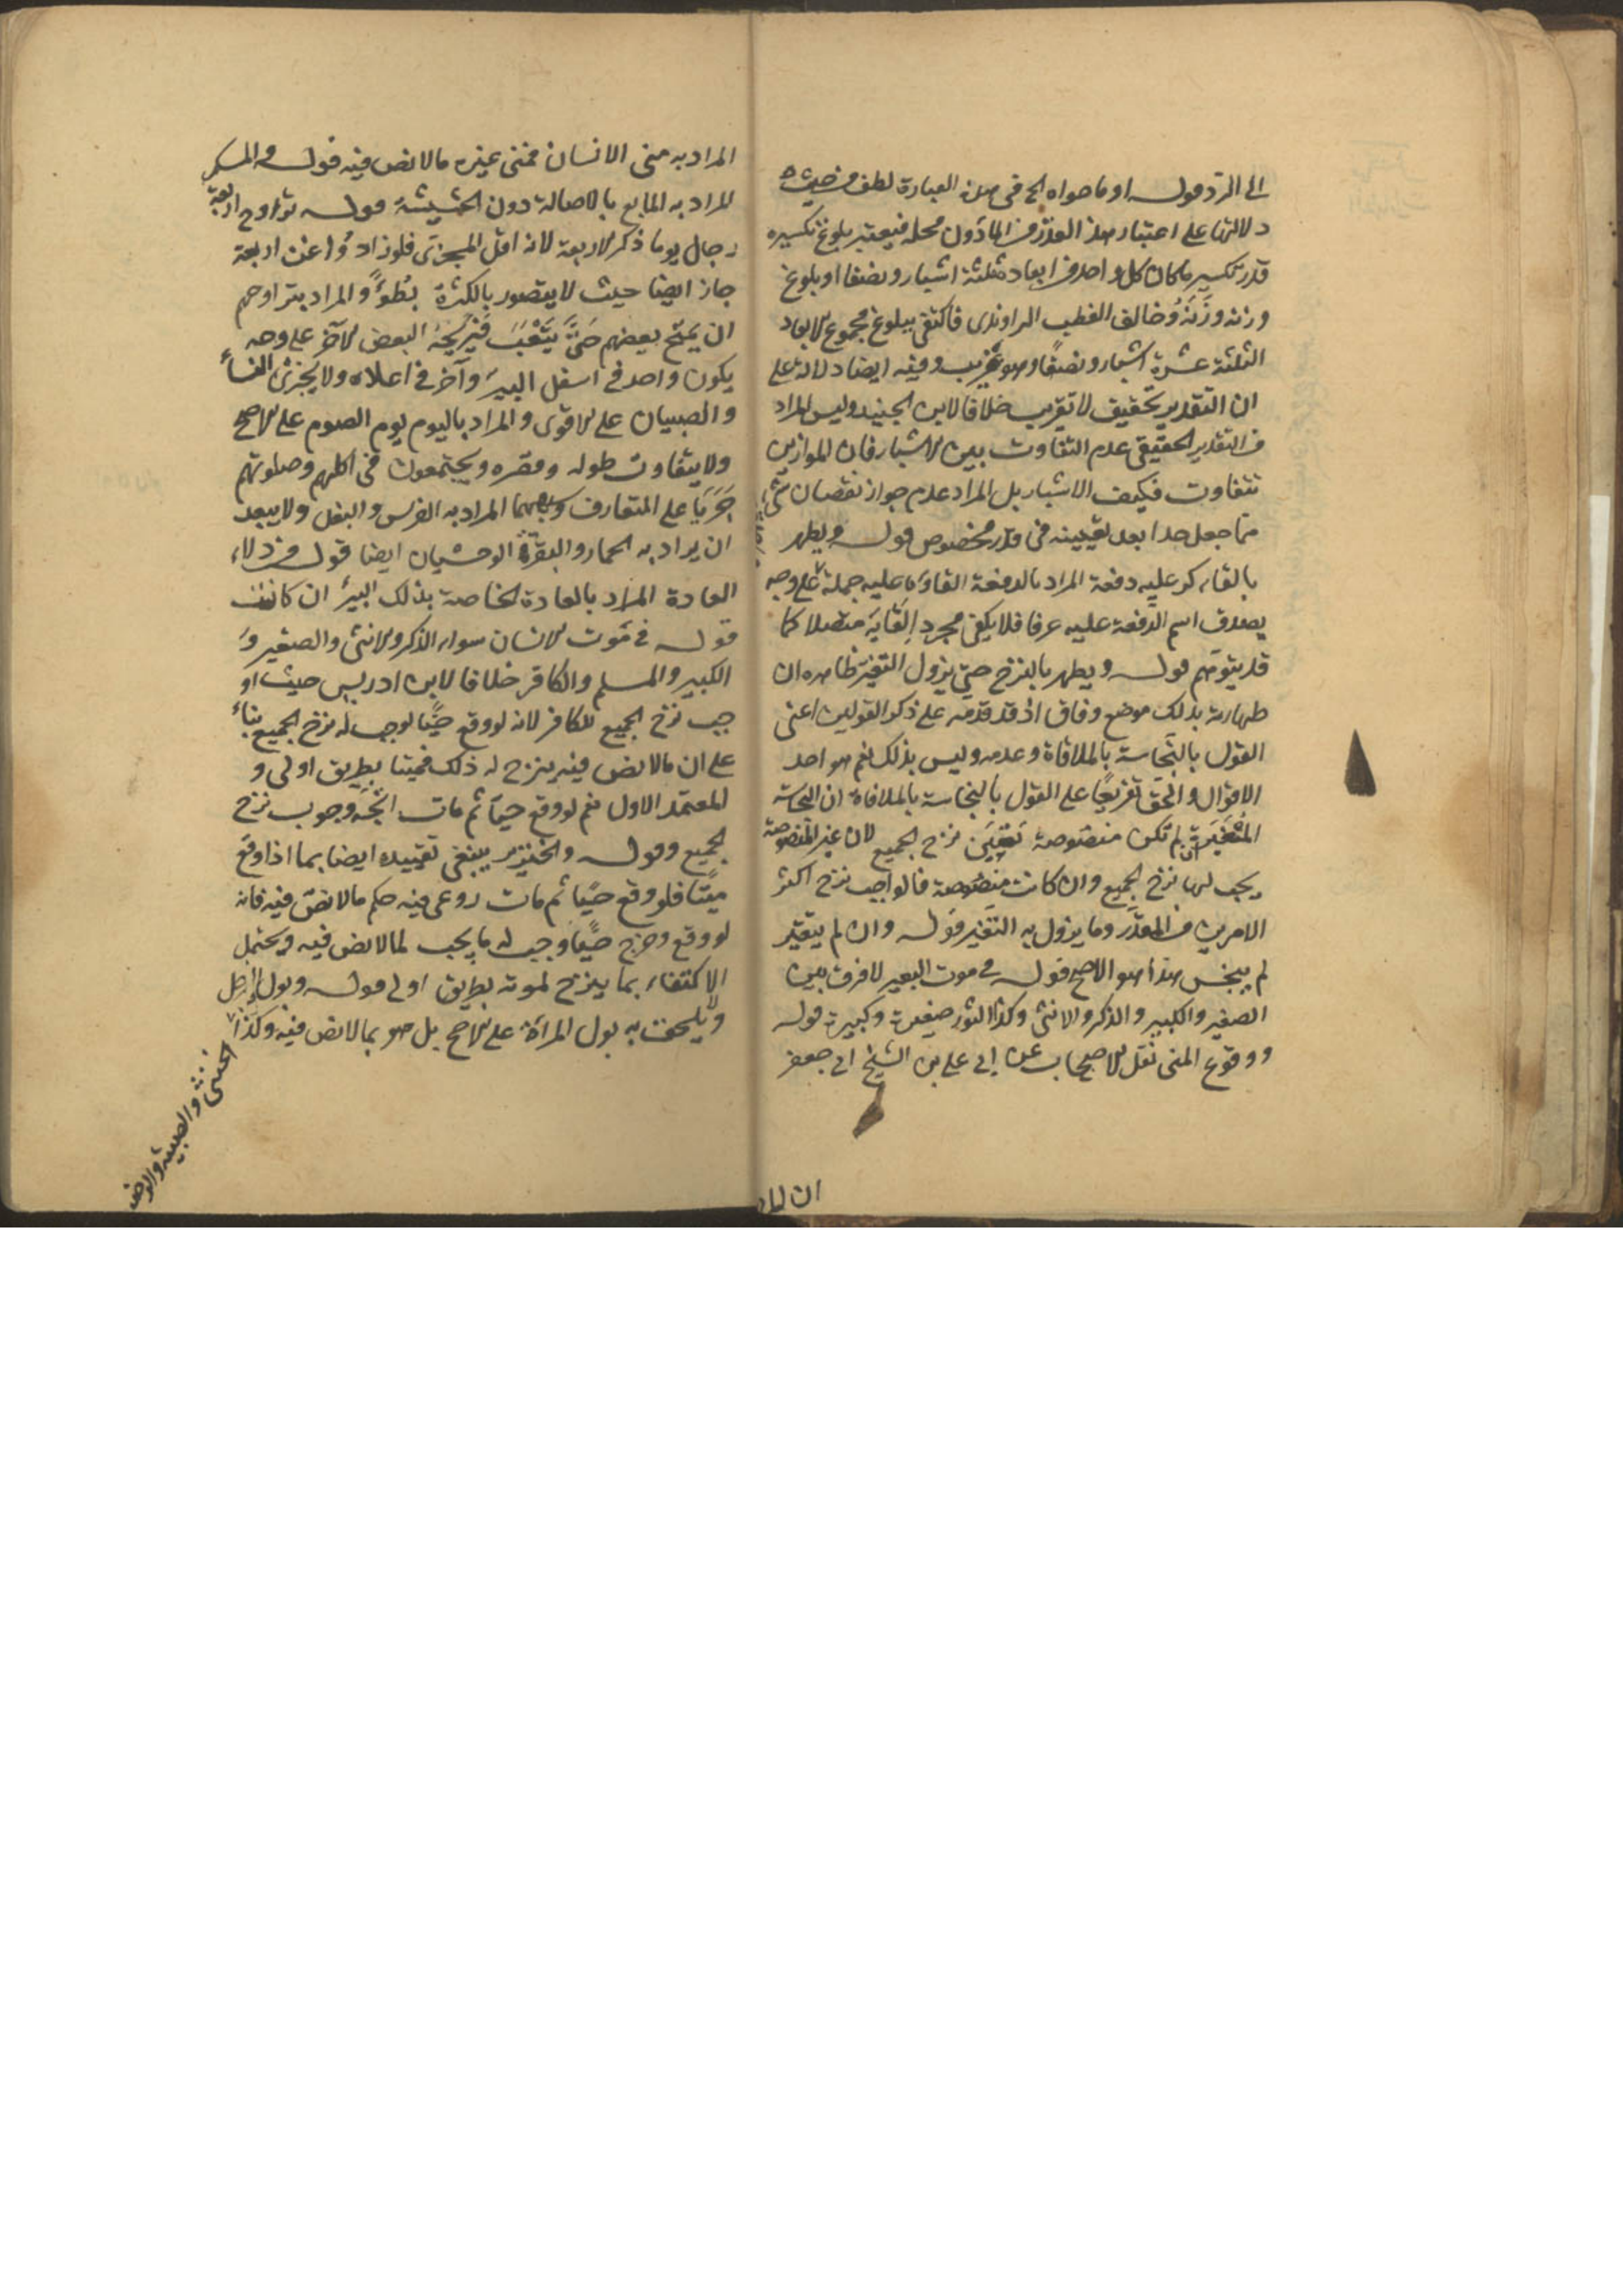 الى المرّ قوله او ما حواه الخ في هذه العبارة لطف من حيث
دلالتها على اعتبار هذا القدر من الماء دون محله فيعتبر بلوغ تكسيره
قدر تكسير ما كان كل واحد من ابعاده ثلثة اشبار ونصفا او بلوغ
وزنه وزنه وخالف القطب الراوندى فاكتفى ببلوغ مجموع الابعاد
الثلثة عشرة اشبار ونصفا وهو غريب وفيه ايضا دلالة على
ان التقدير تحقيق لا تقريب خلافا لابن الجنيد وليس المراد
من التقدير الحقيقى عدم التفاوت بين الاشبار فان الموازين
تتفاوت فكيف الاشبار بل المراد عدم جواز نقصان شئ
مما جعل حدا بعد تعيينه فى قدر مخصوص قوله ويطهر
بالقاء كر عليه دفعة المراد بالدفعة القاؤه عليه جملة على وجه
يصدق اسم الدفعة عليه عرفا فلا يكفى مجرد القايه متصلا كما
قد يتوهم قوله ويطهر بالنزح حتى يزول التغير ظاهره ان
طهارته بذلك موضع وفاق اذ قد قدمه على ذكر القولين اعنى
القول بالنجاسة بالملاقاة وعدمه وليس بذلك نعم هو احد
الاقوال والحق تفريعا على القول بالنجاسة بالملاقاة ان النجاسة
المغيرة ان لم تكن منصوصة تعين نزح الجميع لان غير المنصوصة
يجب لها نزح الجميع وان كانت منصوصة فالواجب نزح اكثر
الامرين من المقدر وما يزول به التغير قوله وان لم يتغير
لم ينجس هذا هو الاصح قوله فى موت البعير لا فرق بين
الصغير والكبير والذكر والانثى وكذا الثور صغيره وكبيره قوله
ووقوع المنى نقل الاصحاب عن ابى على بن الشيخ ابى جعفر
ان المراد
المراد به منى الانسان فمنى غيره مما لا نص فيه قوله والمسكر
المراد به المايع بالاصالة دون الحشيشة قوله تراوح اربعة
رجال يوما ذكر الاربعة لانه اقل المجزى فلو زادوا عن اربعة
جاز ايضا حيث لا يتصور بالكثرة بطؤ والمراد بتراوحهم
ان يمتح بعضهم حتى يتعب فيريحه البعض الآخر على وجه
يكون واحد فى اسفل البير وآخر فى اعلاه ولا يجزى النساء
والصبيان على الاقوى والمراد باليوم يوم الصوم على الاصح
ولا يتفاوت طوله وقصره ويجتمعون فى اكلهم وصلوتهم
جريا على المتعارف وبهيما المراد به الفرس والبغل ولا يبعد
ان يراد به الحمار والبقرة الوحشيان ايضا قوله من دلاء
العادة المراد بالعادة الخاصة بذلك البير ان كانت
قوله فى موت الانسان سواء الذكر والانثى والصغير و
الكبير والمسلم والكافر خلافا لابن ادريس حيث او
جب نزح الجميع للكافر لانه لو وقع حيا لوجب له نزح الجميع بناء
على ان ما لا نص فيه ينزح له ذلك فميتا بطريق اولى و
المعتمد الاول نعم لو وقع حيا ثم مات اتجه وجوب نزح
الجميع وقوله والخنزير ينبغى تقييده ايضا بما اذا وقع
ميتا فلو وقع حيا ثم مات روعى فيه حكم ما لا نص فيه فانه
لو وقع وخرج حيا وجب له ما يجب لما لا نص فيه ويحتمل
الاكتفاء بما ينزح لموته بطريق اولى قوله وبول الرجل
ولا يلحق به بول المراة على الاصح بل هو مما لا نص فيه وكذا
الخنثى والصبية